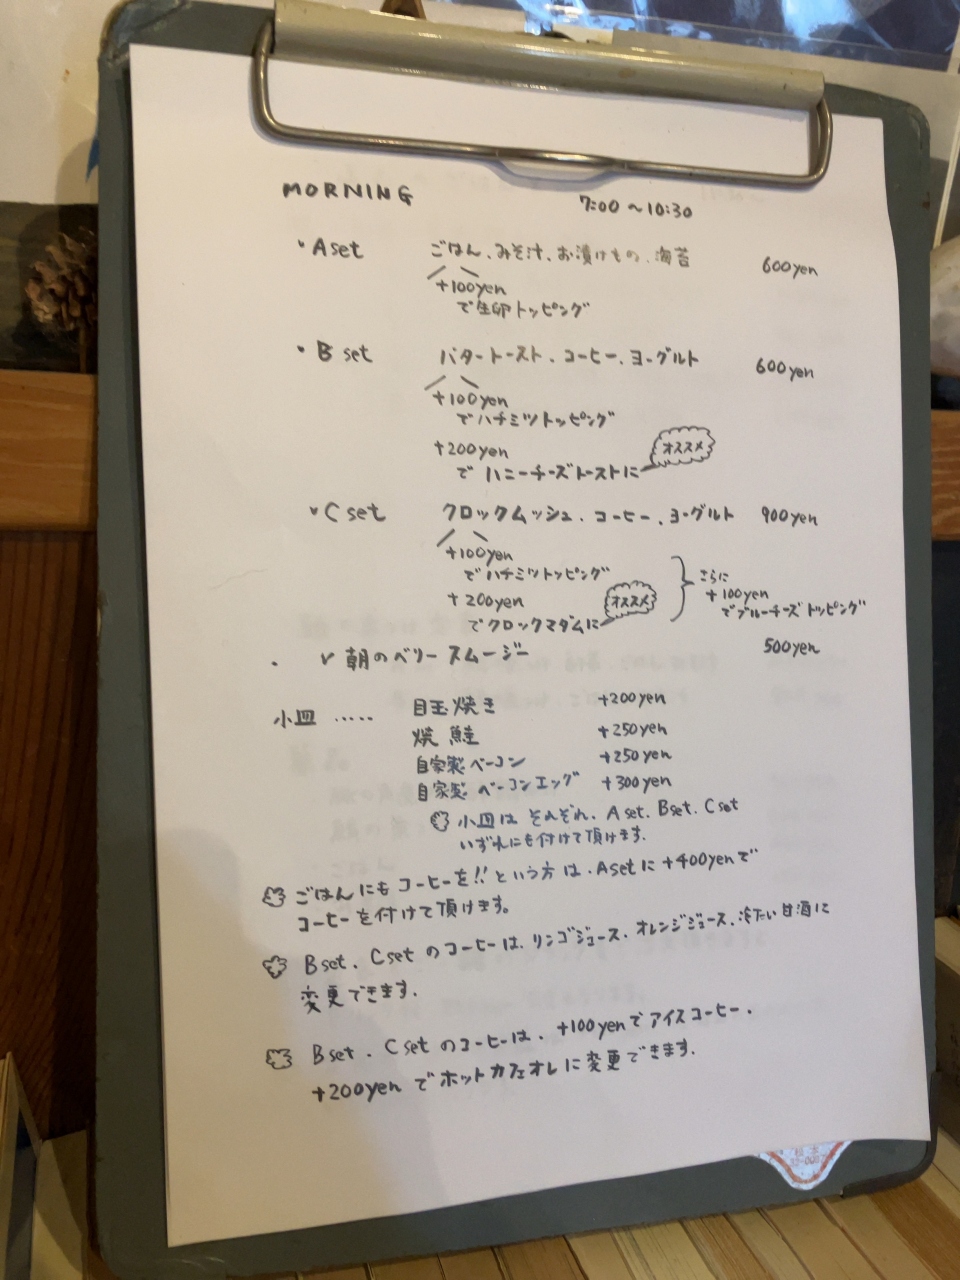 MORNING 7:00 〜10:30
・A set ごはん、みそ汁、お漬けもの、海苔 600yen
+100yen
で生卵トッピング
・B set バタートースト、コーヒー、ヨーグルト 600yen
+100yen
でハチミツトッピング
+200yen
で ハニーチーズトーストに オススメ
・C set クロックムッシュ、コーヒー、ヨーグルト 900yen
+100yen
でハチミツトッピング
+200yen
でクロックマダムに オススメ
さらに
+100yen
でブルーチーズトッピング
・ 朝のベリースムージー 500yen
小皿 ‥‥‥ 目玉焼き +200yen
焼鮭 +250yen
自家製ベーコン +250yen
自家製ベーコンエッグ +300yen
小皿は それぞれ、A set、B set、C set
いずれにも付けて頂けます。
ごはんにもコーヒーを!! という方は、A setに+400yenで
コーヒーを付けて頂けます。
B set、C set のコーヒーは、リンゴジュース、オレンジジュース、冷たい甘酒に
変更できます。
B set、C set のコーヒーは、+100yenでアイスコーヒー、
+200yen でホットカフェオレに変更できます。